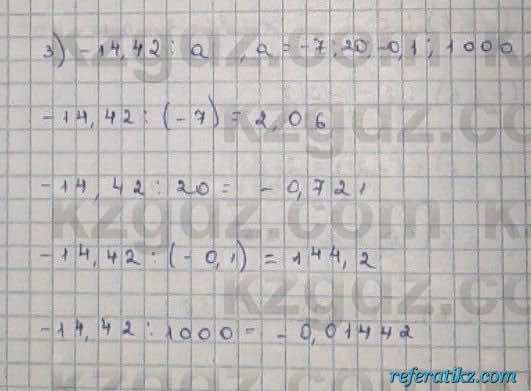 3) -14,42 : a , a = -7; 20; -0,1; 1000
-14,42 : (-7) = 2,06
-14,42 : 20 = -0,721
-14,42 : (-0,1) = 144,2
-14,42 : 1000 = -0,01442
kzgdz.com
referatikz.com